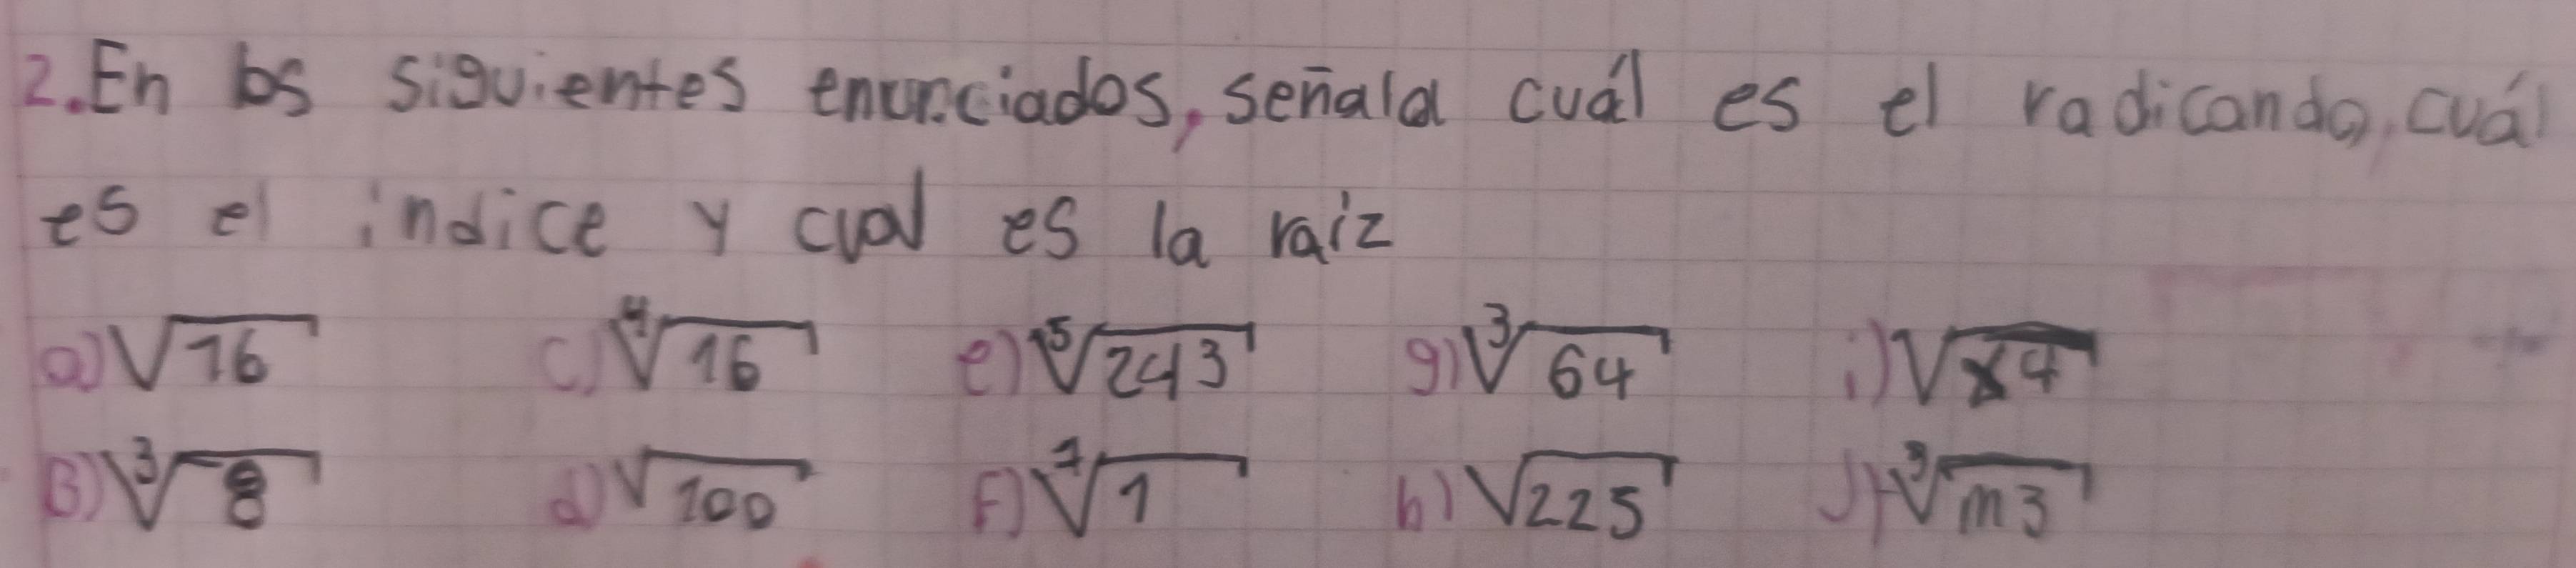 2. En los siguientes enunciados, señala cuál es el radicando, cuál
es el índice y cual es la raiz
a) √16 c) ∜16 e) ⁵√243 g) ∛64 i) √x4
B) ∛-8 d) √100 F) ⁷√1 h) √225 J) ∛m3